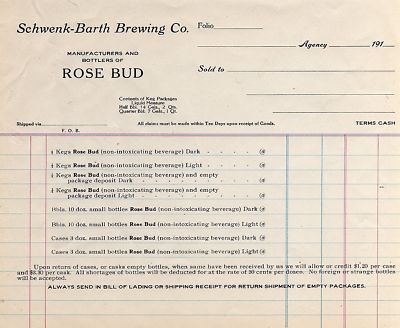 Schwenk-Barth Brewing Co.
Folio
Agency 191
MANUFACTURERS AND
BOTTLERS OF
ROSE BUD
Sold to
Contents of Keg Packages
Liquid Measure
Half Bbl. 14 Gals., 2 Qts.
Quarter Bbl. 7 Gals., 1 Qt.
Shipped via
All claims must be made within Ten Days upon receipt of Goods.
TERMS CASH
F. O. B.
Kegs Rose Bud (non-intoxicating beverage) Dark @
Kegs Rose Bud (non-intoxicating beverage) Light @
Kegs Rose Bud (non-intoxicating beverage) and empty
package deposit Dark @
Kegs Rose Bud (non-intoxicating beverage) and empty
package deposit Light @
Bbls. 10 doz. small bottles Rose Bud (non-intoxicating beverage) Dark @
Bbls. 10 doz. small bottles Rose Bud (non-intoxicating beverage) Light @
Cases 3 doz. small bottles Rose Bud (non-intoxicating beverage) Dark @
Cases 3 doz. small bottles Rose Bud (non-intoxicating beverage) Light @
Upon return of cases, or casks empty bottles, when same have been received by us we will allow or credit $1.20 per case
and $3.30 per cask. All shortages of bottles will be deducted for at the rate of 30 cents per dozen. No foreign or strange bottles
will be accepted.
ALWAYS SEND IN BILL OF LADING OR SHIPPING RECEIPT FOR RETURN SHIPMENT OF EMPTY PACKAGES.